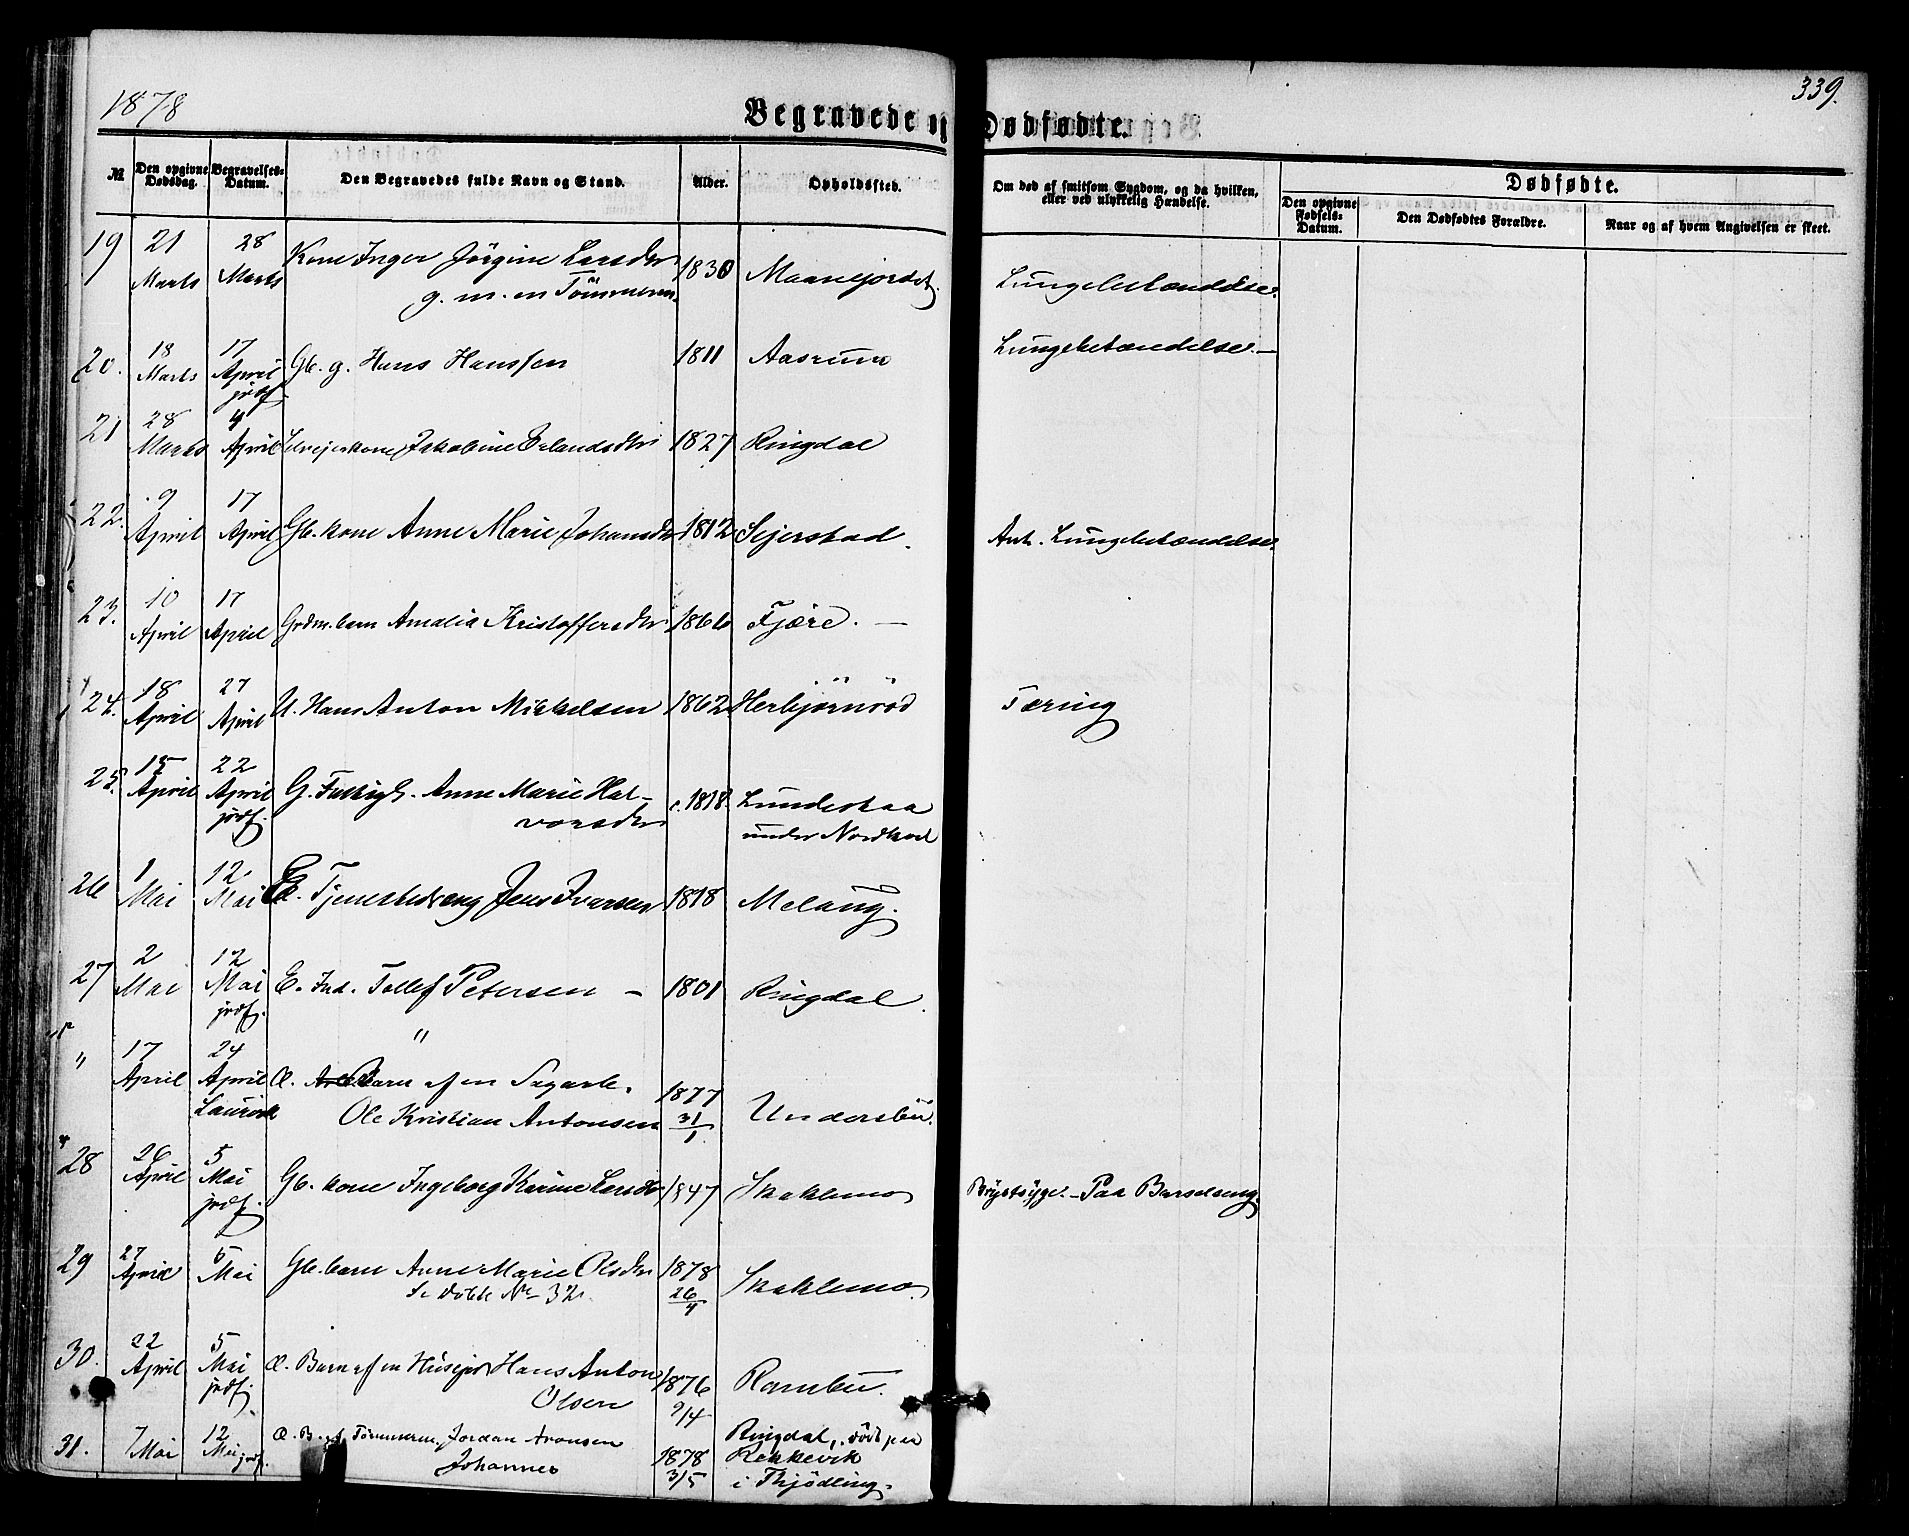 1878
339.
Begravede og Dødfødte.
№
Den opgivne Dødsdag.
Begravelses-Datum.
Den Begravedes fulde Navn og Stand.
Alder.
Opholdssted.
Om død af smitsom Sygdom, og da hvilken, eller ved ulykkelig Hændelse.
Dødfødte.
Den opgivne Fødsels-Datum.
Den Dødfødtes Forældre.
Naar og af hvem Angivelsen er skeet.
19 21 Marts 28 Marts Kone Inger Jørgine Larsdtr 1830 Maanejordet. Lungebetændelse.
g. m. en Tømmerm.
20. 18 Marts 17 April jrdf. Gb. g. Hans Hanssen 1811 Aasrum Lungebetændelse. —
21 28 Marts 4 April Jakobine Erlandsdtr 1827 Ringdal
22. 9 April 17 April Gb. kone Anne Marie Johansdtr 1812 Sejerstad. Ant. Lungebetændelse.
23. 10 April 17 April Grdm. barn Amalia Kristoffersdtr 1866 Fjære. —
24. 18 April 27 April U. Hans Anton Mikkelsen 1862 Herbjørnröd Tæring
25. 15 April 22 April jrdf. G. Fattigl. Anne Marie Hal-
vorsdtr c. 1818. Lundestaa
under Nordkval
26 1 Mai 12 Mai E. Tjenestedreng Jens Iversen 1818 Melaug.
27 2 Mai 12 Mai jrdf. E. Ind. Tollef Petersen — 1801 Ringdal.
"
" 17 April 24 April Laurvik Æ. Barn af en Sagarb.
Ole Kristian Antonsen 1877 31/1 Undersbu.
28 26 April 5 Mai jrdf. Gb. kone Ingeborg Karine Larsdtr 1847 Skaklemo Brystsyge. — Paa Barselseng
29 27 April 5 Mai Gb. barn Anne Marie Olsdtr 1878 26/4 Skaklemo.
Se döbte No 32.
30. 22 April 5 Mai jrdf. Æ. Barn af en Husejer Hans Anton
Olsen 1876 9/4 Rambu.
31. 7 Mai 12 Mai jrdf. Æ. B. af Tömmerm. Jordan Aronsen
Johannes 1878 3/5 Ringdal, död paa
Rekkevik
i Thjödling.